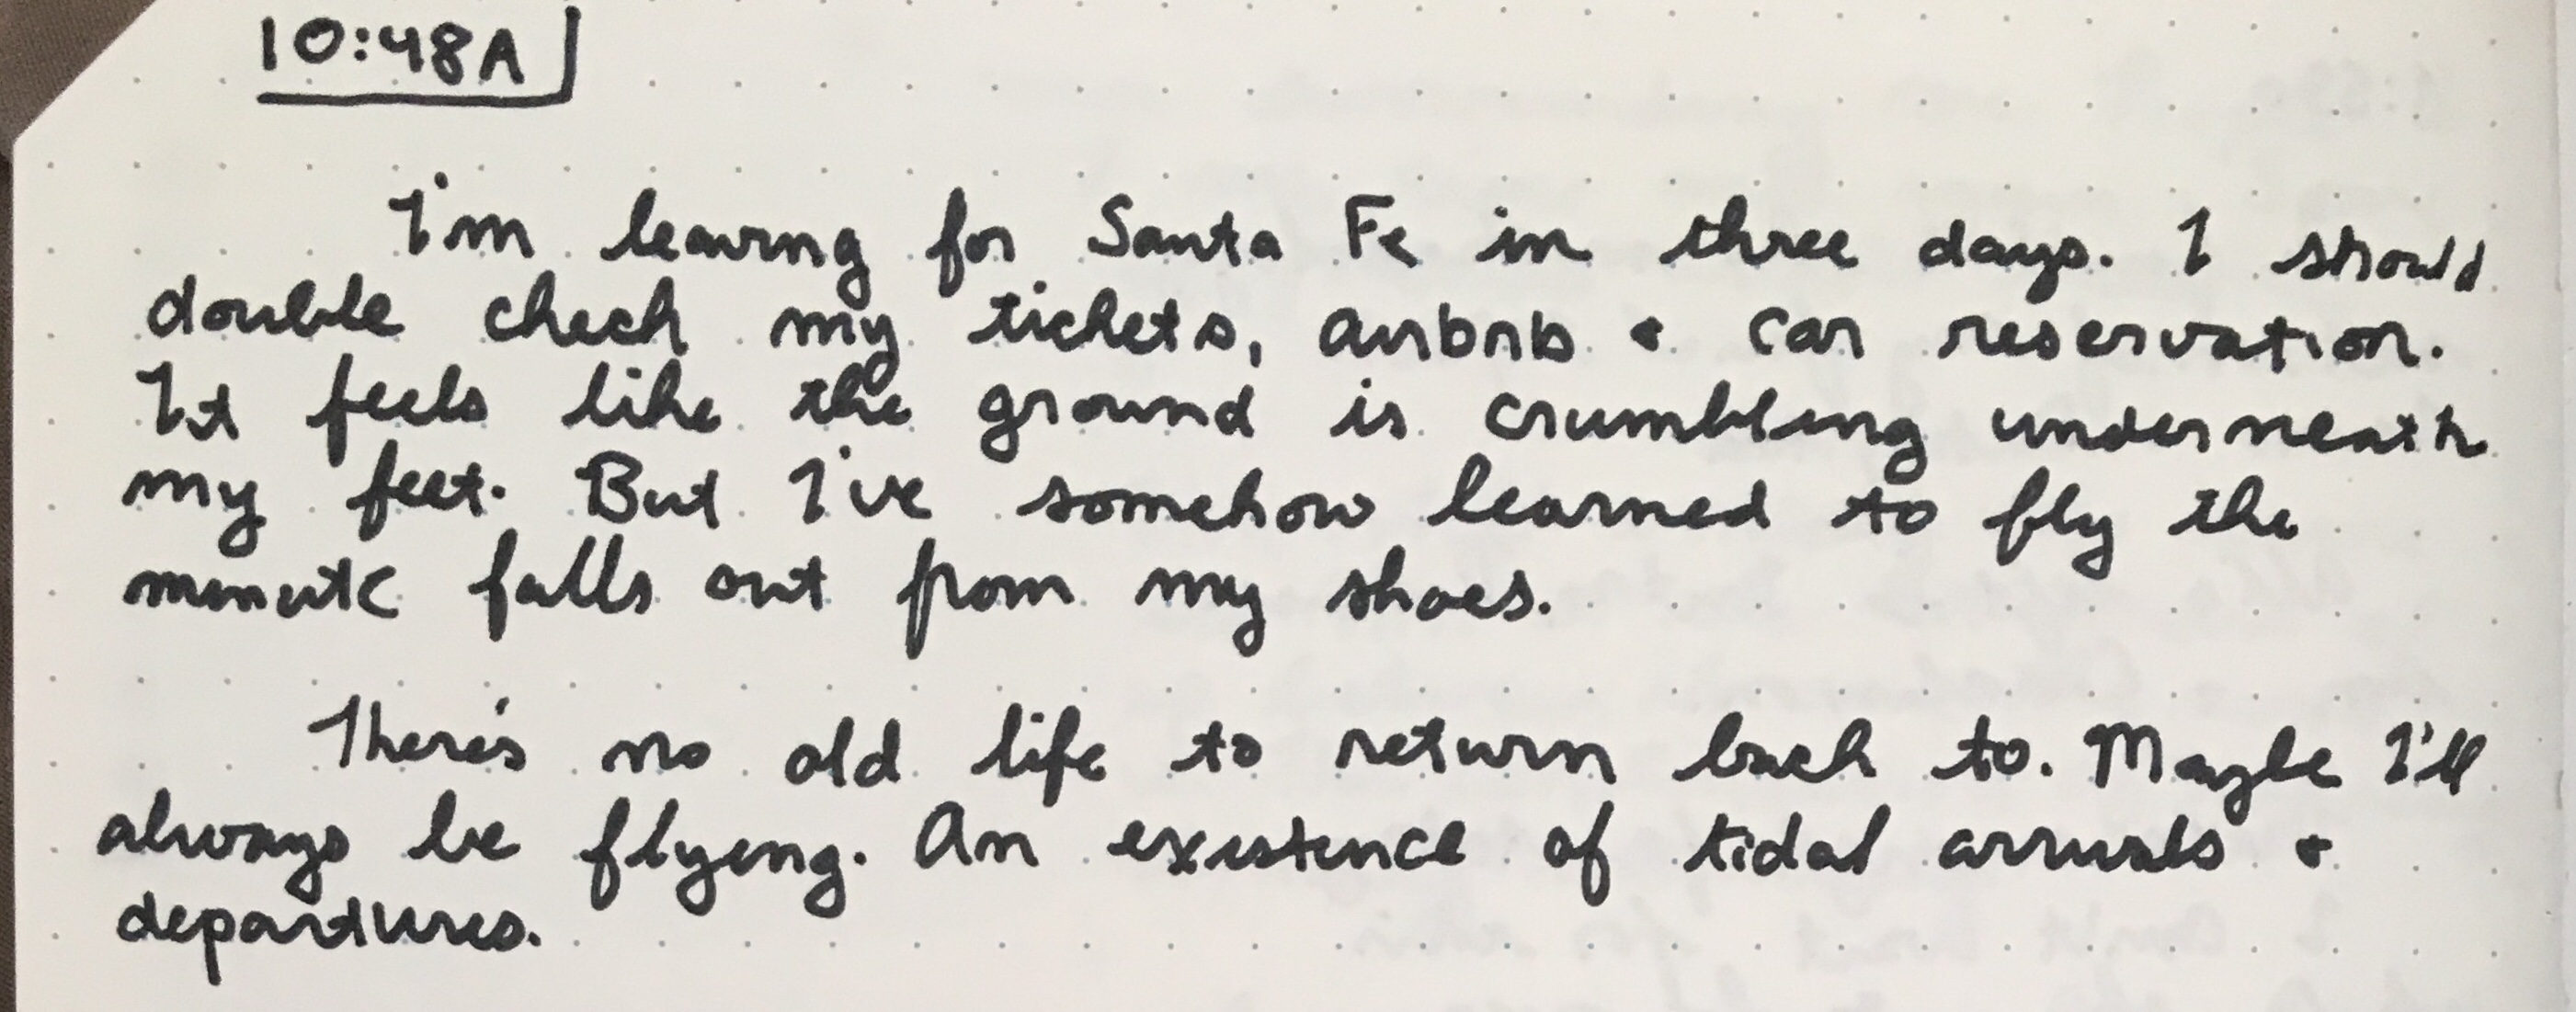 10:48A
I'm leaving for Santa Fe in three days. I should
double check my tickets, airbnb & car reservation.
It feels like the ground is crumbling underneath
my feet. But I've somehow learned to fly the
minute falls out from my shoes.
There's no old life to return back to. Maybe I'll
always be flying. An existence of tidal arrivals &
departures.